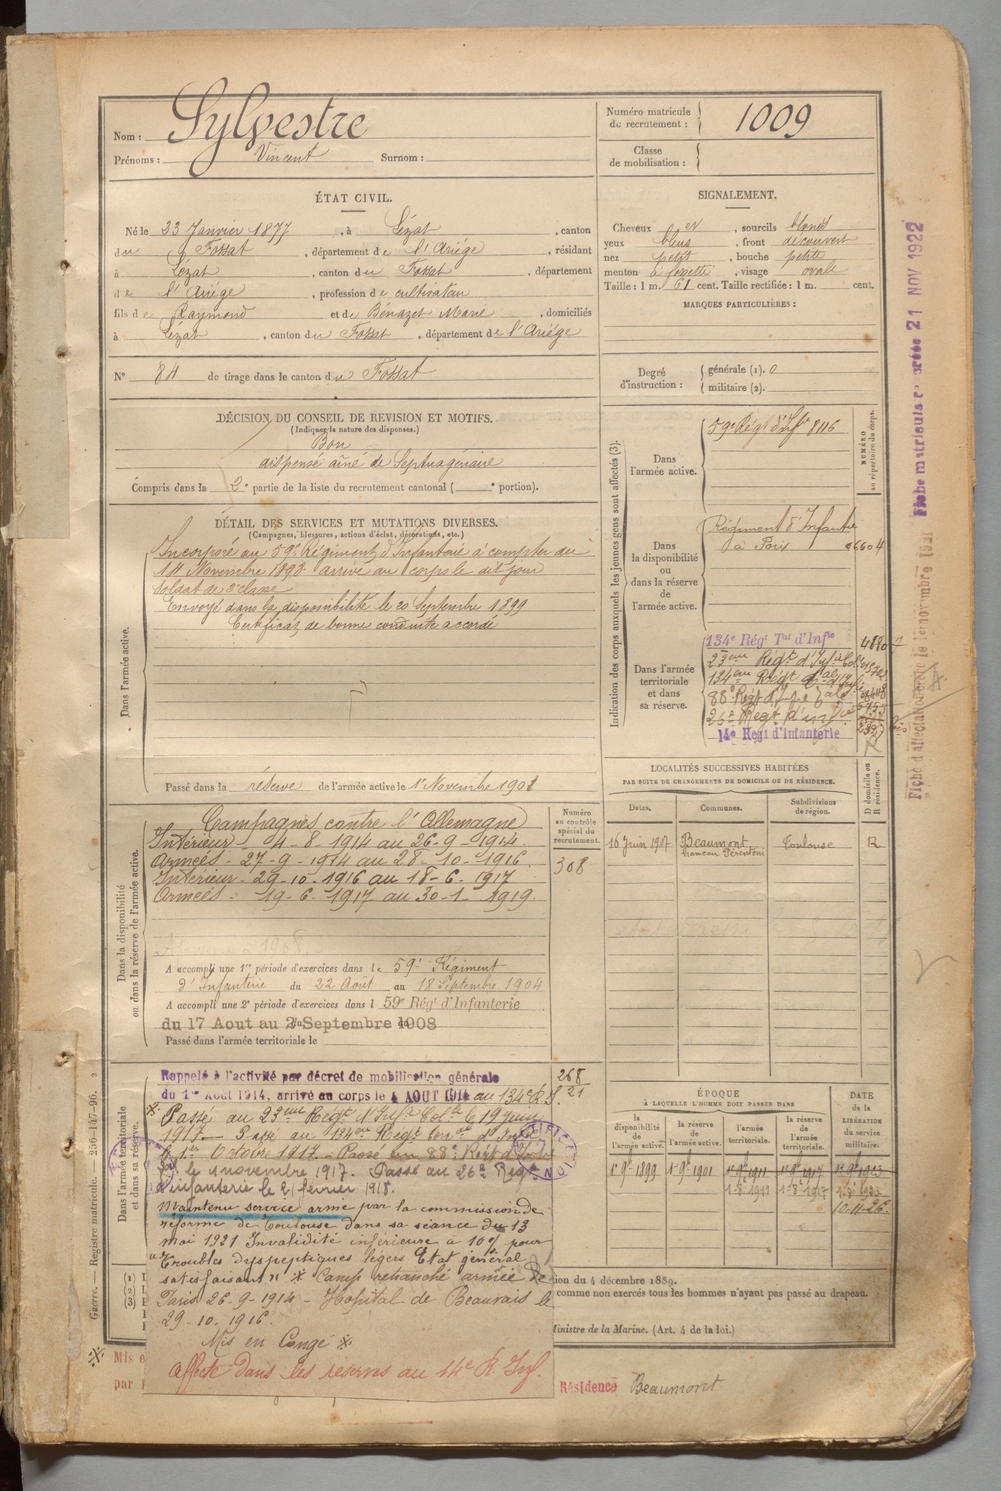 Nom : Sylvestre
Prénoms : Vincent Surnom :
Numéro matricule du recrutement : 1009
Classe de mobilisation :
ÉTAT CIVIL.
Né le 23 Janvier 1877, à Lézat, canton
du Fossat, département de l'Ariége, résidant
à Lézat, canton du Fossat, département
de l'Ariége, profession de cultivateur
fils de Raymond et de Bénazet Marie, domiciliés
à Lézat, canton du Fossat, département de l'Ariége
N° 84 de tirage dans le canton du Fossat
SIGNALEMENT.
Cheveux et, sourcils blonds
yeux bleus, front découvert
nez petit, bouche petite
menton à fossette, visage ovale
Taille : 1 m. 61 cent. Taille rectifiée : 1 m. cent.
MARQUES PARTICULIÈRES :
Degré d'instruction : générale (1). 0
militaire (2).
DÉCISION DU CONSEIL DE REVISION ET MOTIFS.
(Indiquer la nature des dispenses.)
Bon
dispensé aîné de Septuagénaire
Compris dans la 2e partie de la liste du recrutement cantonal ( e portion).
DÉTAIL DES SERVICES ET MUTATIONS DIVERSES.
(Campagnes, blessures, actions d'éclat, décorations, etc.)
Dans l'armée active.
Incorporé au 59e Régiment d'Infanterie à compter du
14 Novembre 1898 arrivé au corps le dit jour
soldat de 2e classe
Envoyé dans la disponibilité le 20 Septembre 1899
Certificat de bonne conduite accordé
Passé dans la réserve de l'armée active le 1er Novembre 1901
Indication des corps auxquels les jeunes gens sont affectés (3).
NUMÉRO au répertoire du corps.
Dans l'armée active.
59e Régt d'Infie 8116
Dans la disponibilité ou dans la réserve de l'armée active.
Régiment d'Infantie
à Foix
Dans l'armée territoriale et dans sa réserve.
134e Régt Tal d'Infie
23eme Régt d'Infie Cole
134eme Régt
88e Régt
26e Régt d'infie
14e Régt d'Infanterie
LOCALITÉS SUCCESSIVES HABITÉES
PAR SUITE DE CHANGEMENTS DE DOMICILE OU DE RÉSIDENCE.
Dates. Communes. Subdivisions de région. D domicile ou R résidence.
16 Juin 1907 Beaumont Toulouse R
hameau
Dans la disponibilité ou dans la réserve de l'armée active.
Numéro au contrôle spécial du recrutement.
308
Campagnes contre l'Allemagne
Intérieur - 4-8-1914 au 26-9-1914.
Armées - 27-9-1914 au 28-10-1916.
Intérieur - 29-10-1916 au 18-6-1917
Armées - 19-6-1917 au 30-1-1919.
A accompli une 1re période d'exercices dans le 59e Régiment
d'Infanterie du 22 Août au 18 Septembre 1904
A accompli une 2e période d'exercices dans l 59e Régt d'Infanterie
du 17 Aout au Septembre 1908
Passé dans l'armée territoriale le
Dans l'armée territoriale et dans sa réserve.
268
21
Rappelé à l'activité par décret de mobilisation générale
du 1er Août 1914, arrivé au corps le 4 AOUT 1914 au 134e R.I.
Passé au 23eme Régt d'Infie Cole le 19 juin
1917 - Passé au 134eme Régt
le 1er Octobre 1917 - Passé au 88e Régt
le novembre 1917. Passé au 26e Régt
d'infanterie le 21 février 1918.
Maintenu service armé par la commission de
réforme de Toulouse dans sa séance du 13
mai 1921 Invalidité inférieure à 10% pour
"Troubles dyspeptiques légers Etat général
satisfaisant" Camp retranché armée de
Paris 26-9-1914 - Hopital de Beauvais le
29-10-1916.
Mis en Congé
affecté dans les réserves au 14e R. Inf.
ÉPOQUE
À LAQUELLE L'HOMME DOIT PASSER DANS
la disponibilité de l'armée active. la réserve de l'armée active. l'armée territoriale. la réserve de l'armée territoriale. DATE de la LIBÉRATION du service militaire.
1er 9bre 1899 1er 9bre 1901 1er 9bre 1911 1er 9bre 1917 1er 9bre 1923
10-11-26.
ion du 4 décembre 1889.
comme non exercés tous les hommes n'ayant pas passé au drapeau.
Ministre de la Marine. (Art. 4 de la loi.)
Mis e
par
Résidence Beaumont
Guerre. — Registre matricule. — 256-1447-96.
Fiche matricule 21 NOV 1922
Fiche d'affectation